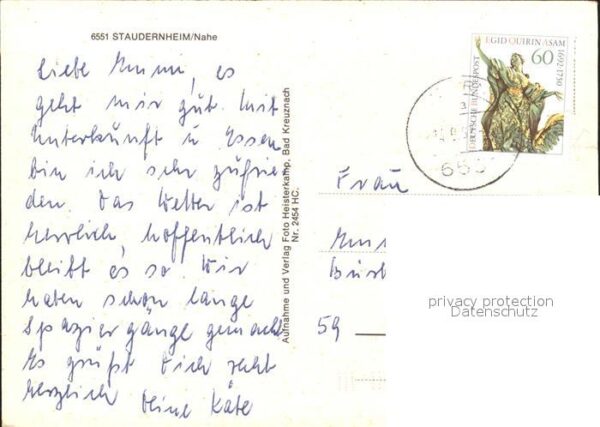 6551 STAUDERNHEIM/Nahe
Liebe Mimi, es
geht mir gut. Mit
Unterkunft u Essen
bin ich sehr zufrie
den. Das Wetter ist
herrlich, hoffentlich
bleibt es so. Wir
haben schon lange
Spaziergänge gemacht
Es grüßt Dich recht
herzlich Deine Käte
Aufnahme und Verlag Foto Heisterkamp, Bad Kreuznach
Nr. 2454 HC.
EGID QUIRIN ASAM
1692-1750
60
DEUTSCHE BUNDESPOST
Frau
59
privacy protection
Datenschutz